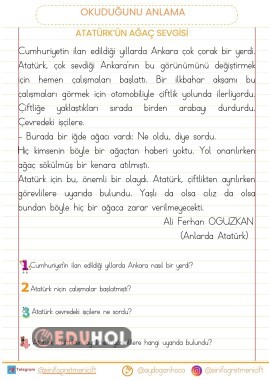 OKUDUĞUNU ANLAMA
ATATÜRK'ÜN AĞAÇ SEVGİSİ
Cumhuriyetin ilan edildiği yıllarda Ankara çok çorak bir yerdi.
Atatürk, çok sevdiği Ankara'nın bu görünümünü değiştirmek
için hemen çalışmaları başlattı. Bir ilkbahar akşamı bu
çalışmaları görmek için otomobiliyle çiftlik yolunda ilerliyordu.
Çiftliğe yaklaştıkları sırada birden arabay durdurdu.
Çevredeki işçilere.
– Burada bir iğde ağacı vardı: Ne oldu, diye sordu.
Hiç kimsenin böyle bir ağaçtan haberi yoktu. Yol onarılırken
ağaç sökülmüş bir kenara atılmıştı.
Atatürk için bu, önemli bir olaydı. Atatürk, çiftlikten ayrılırken
görevlilere uyarıda bulundu. Yaşlı da olsa cılız da olsa
bundan böyle hiç bir ağaca zarar verilmeyecekti.
Ali Ferhan OĞUZKAN
(Anlarda Atatürk)
1 Cumhuriyetin ilan edildiği yıllarda Ankara nasıl bir yerdi?
2 Atatürk niçin çalışmalar başlatmıştı?
3 Atatürk çevredeki işçilere ne sordu?
EDUHOL
hangi uyarıda bulundu?
Telegram
@sinifogretmenicft
@aydoganhoca
@sinifogretmenicift